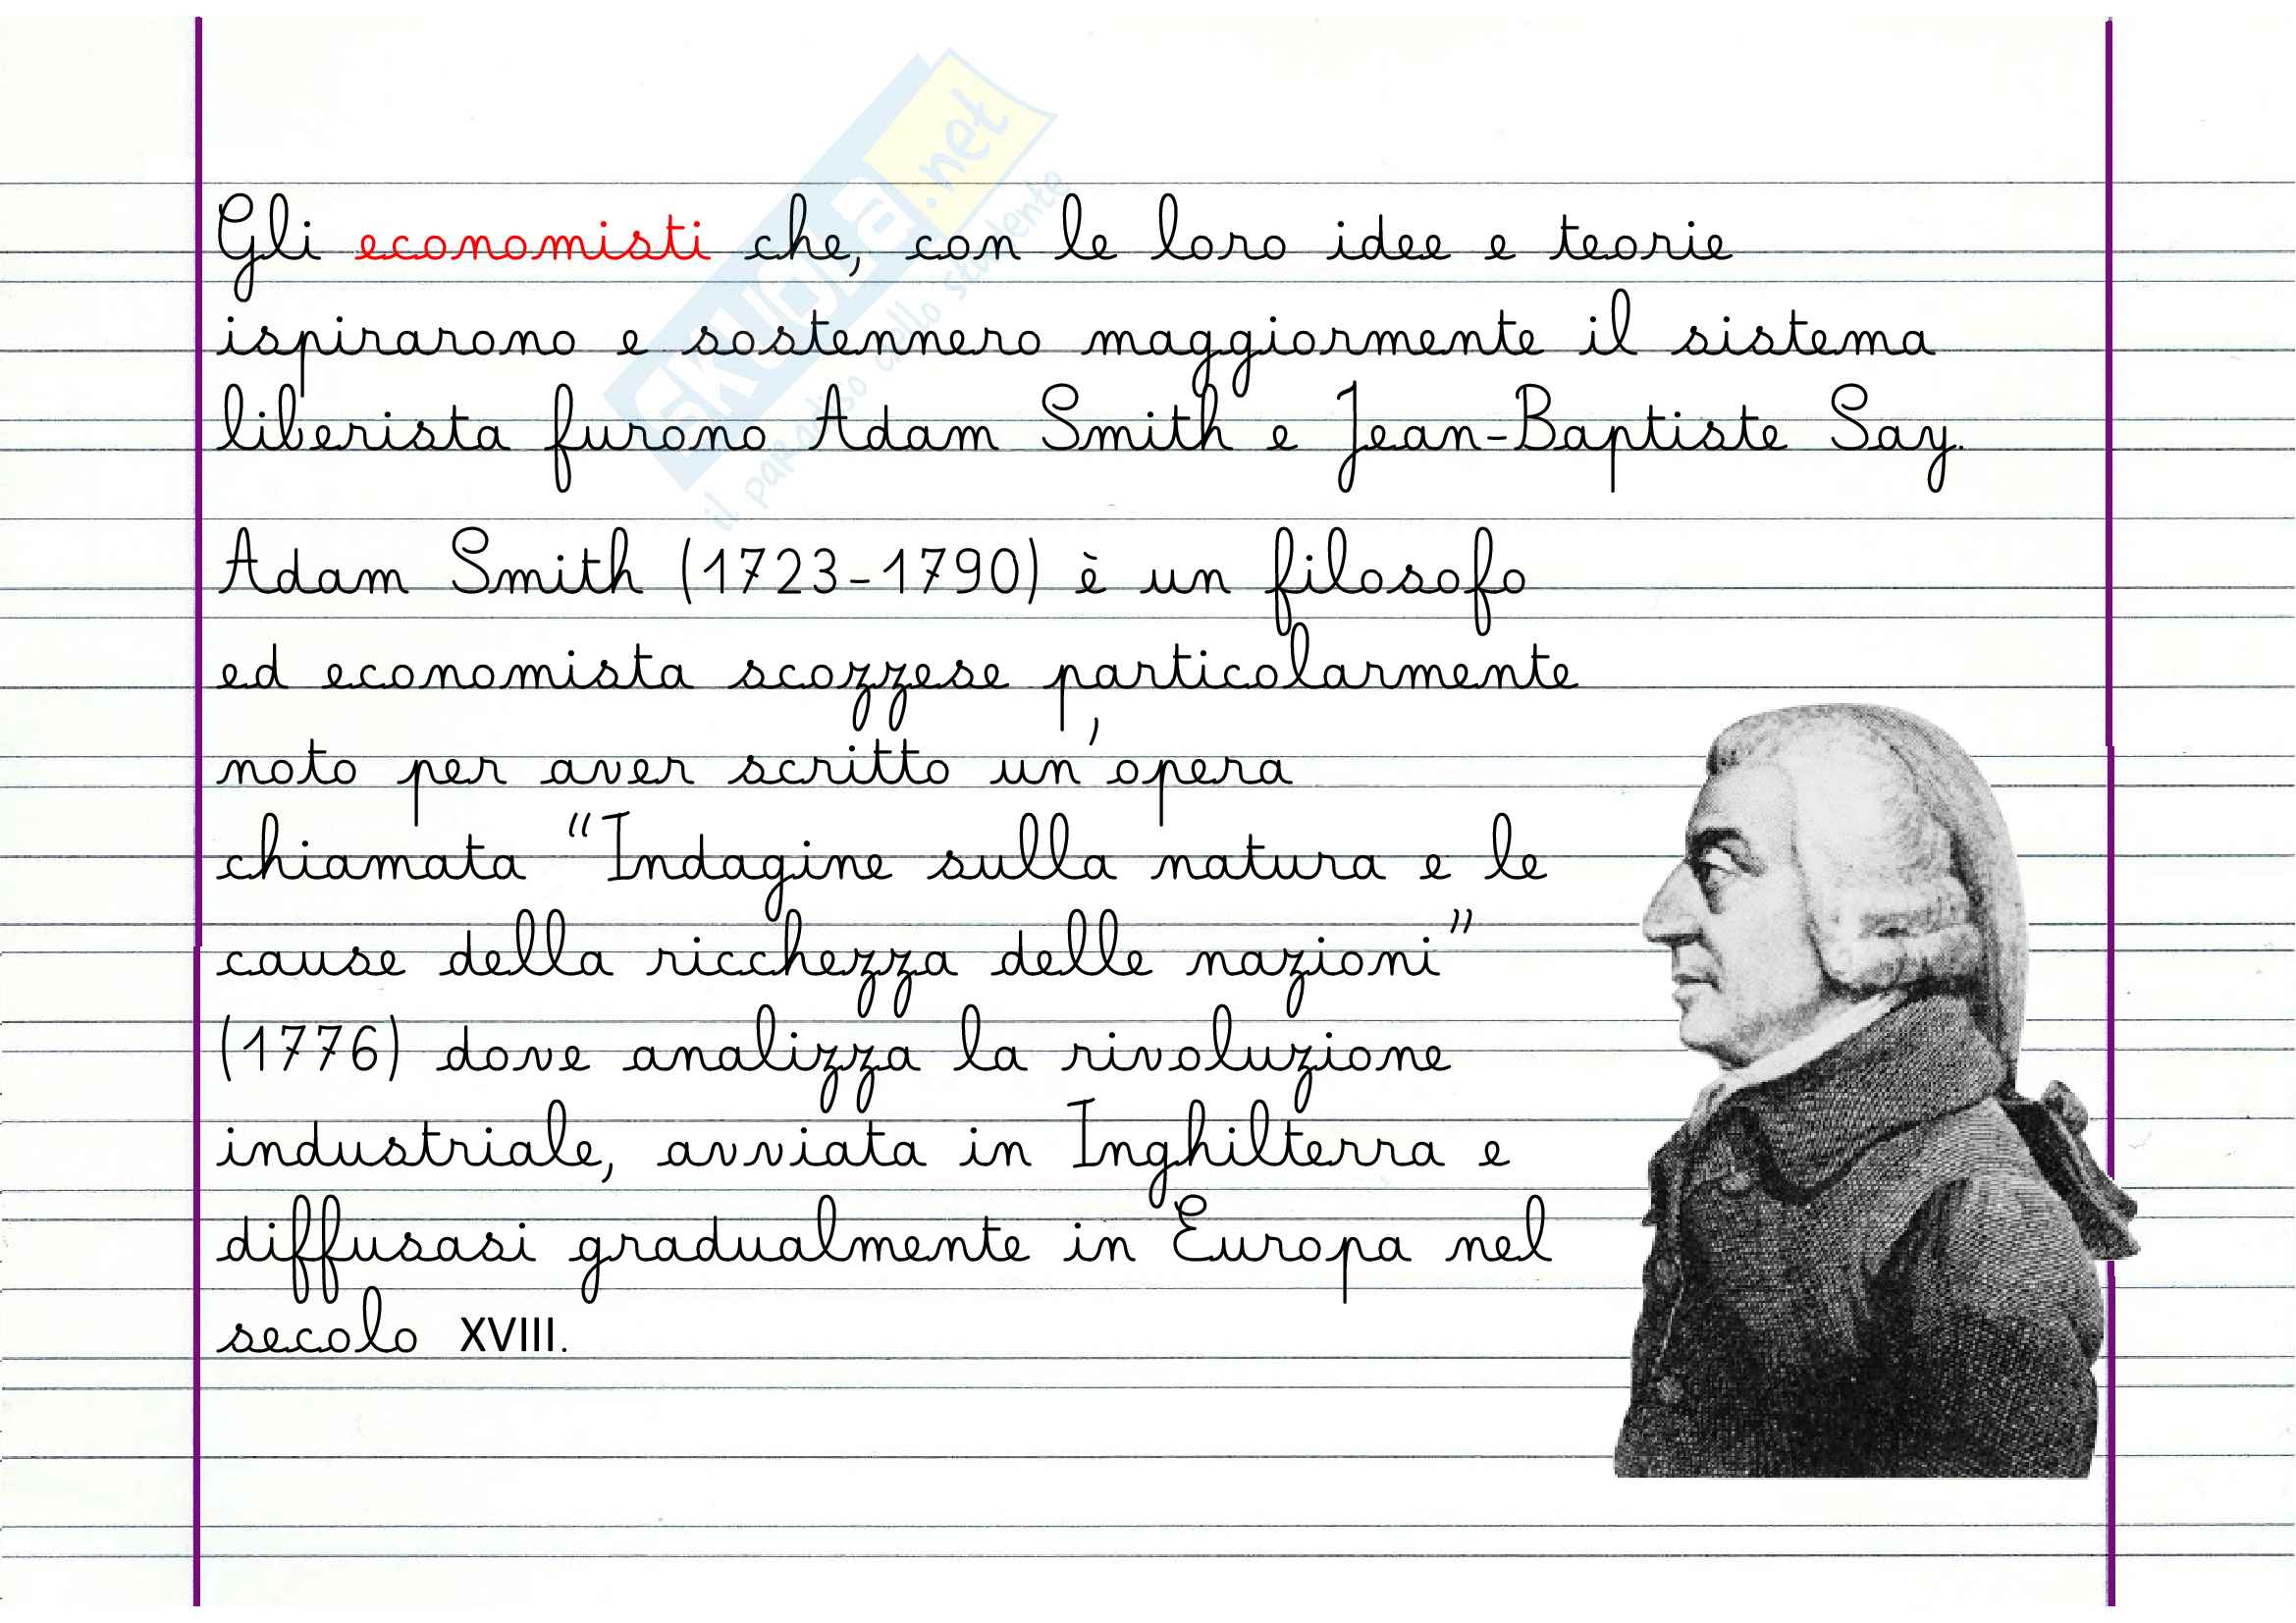 SKUOLA.net
il paradiso dello studente
Gli economisti che, con le loro idee e teorie
ispirarono e sostennero maggiormente il sistema
liberista furono Adam Smith e Jean-Baptiste Say.
Adam Smith (1723-1790) è un filosofo
ed economista scozzese particolarmente
noto per aver scritto un'opera
chiamata “Indagine sulla natura e le
cause della ricchezza delle nazioni”
(1776) dove analizza la rivoluzione
industriale, avviata in Inghilterra e
diffusasi gradualmente in Europa nel
secolo XVIII.